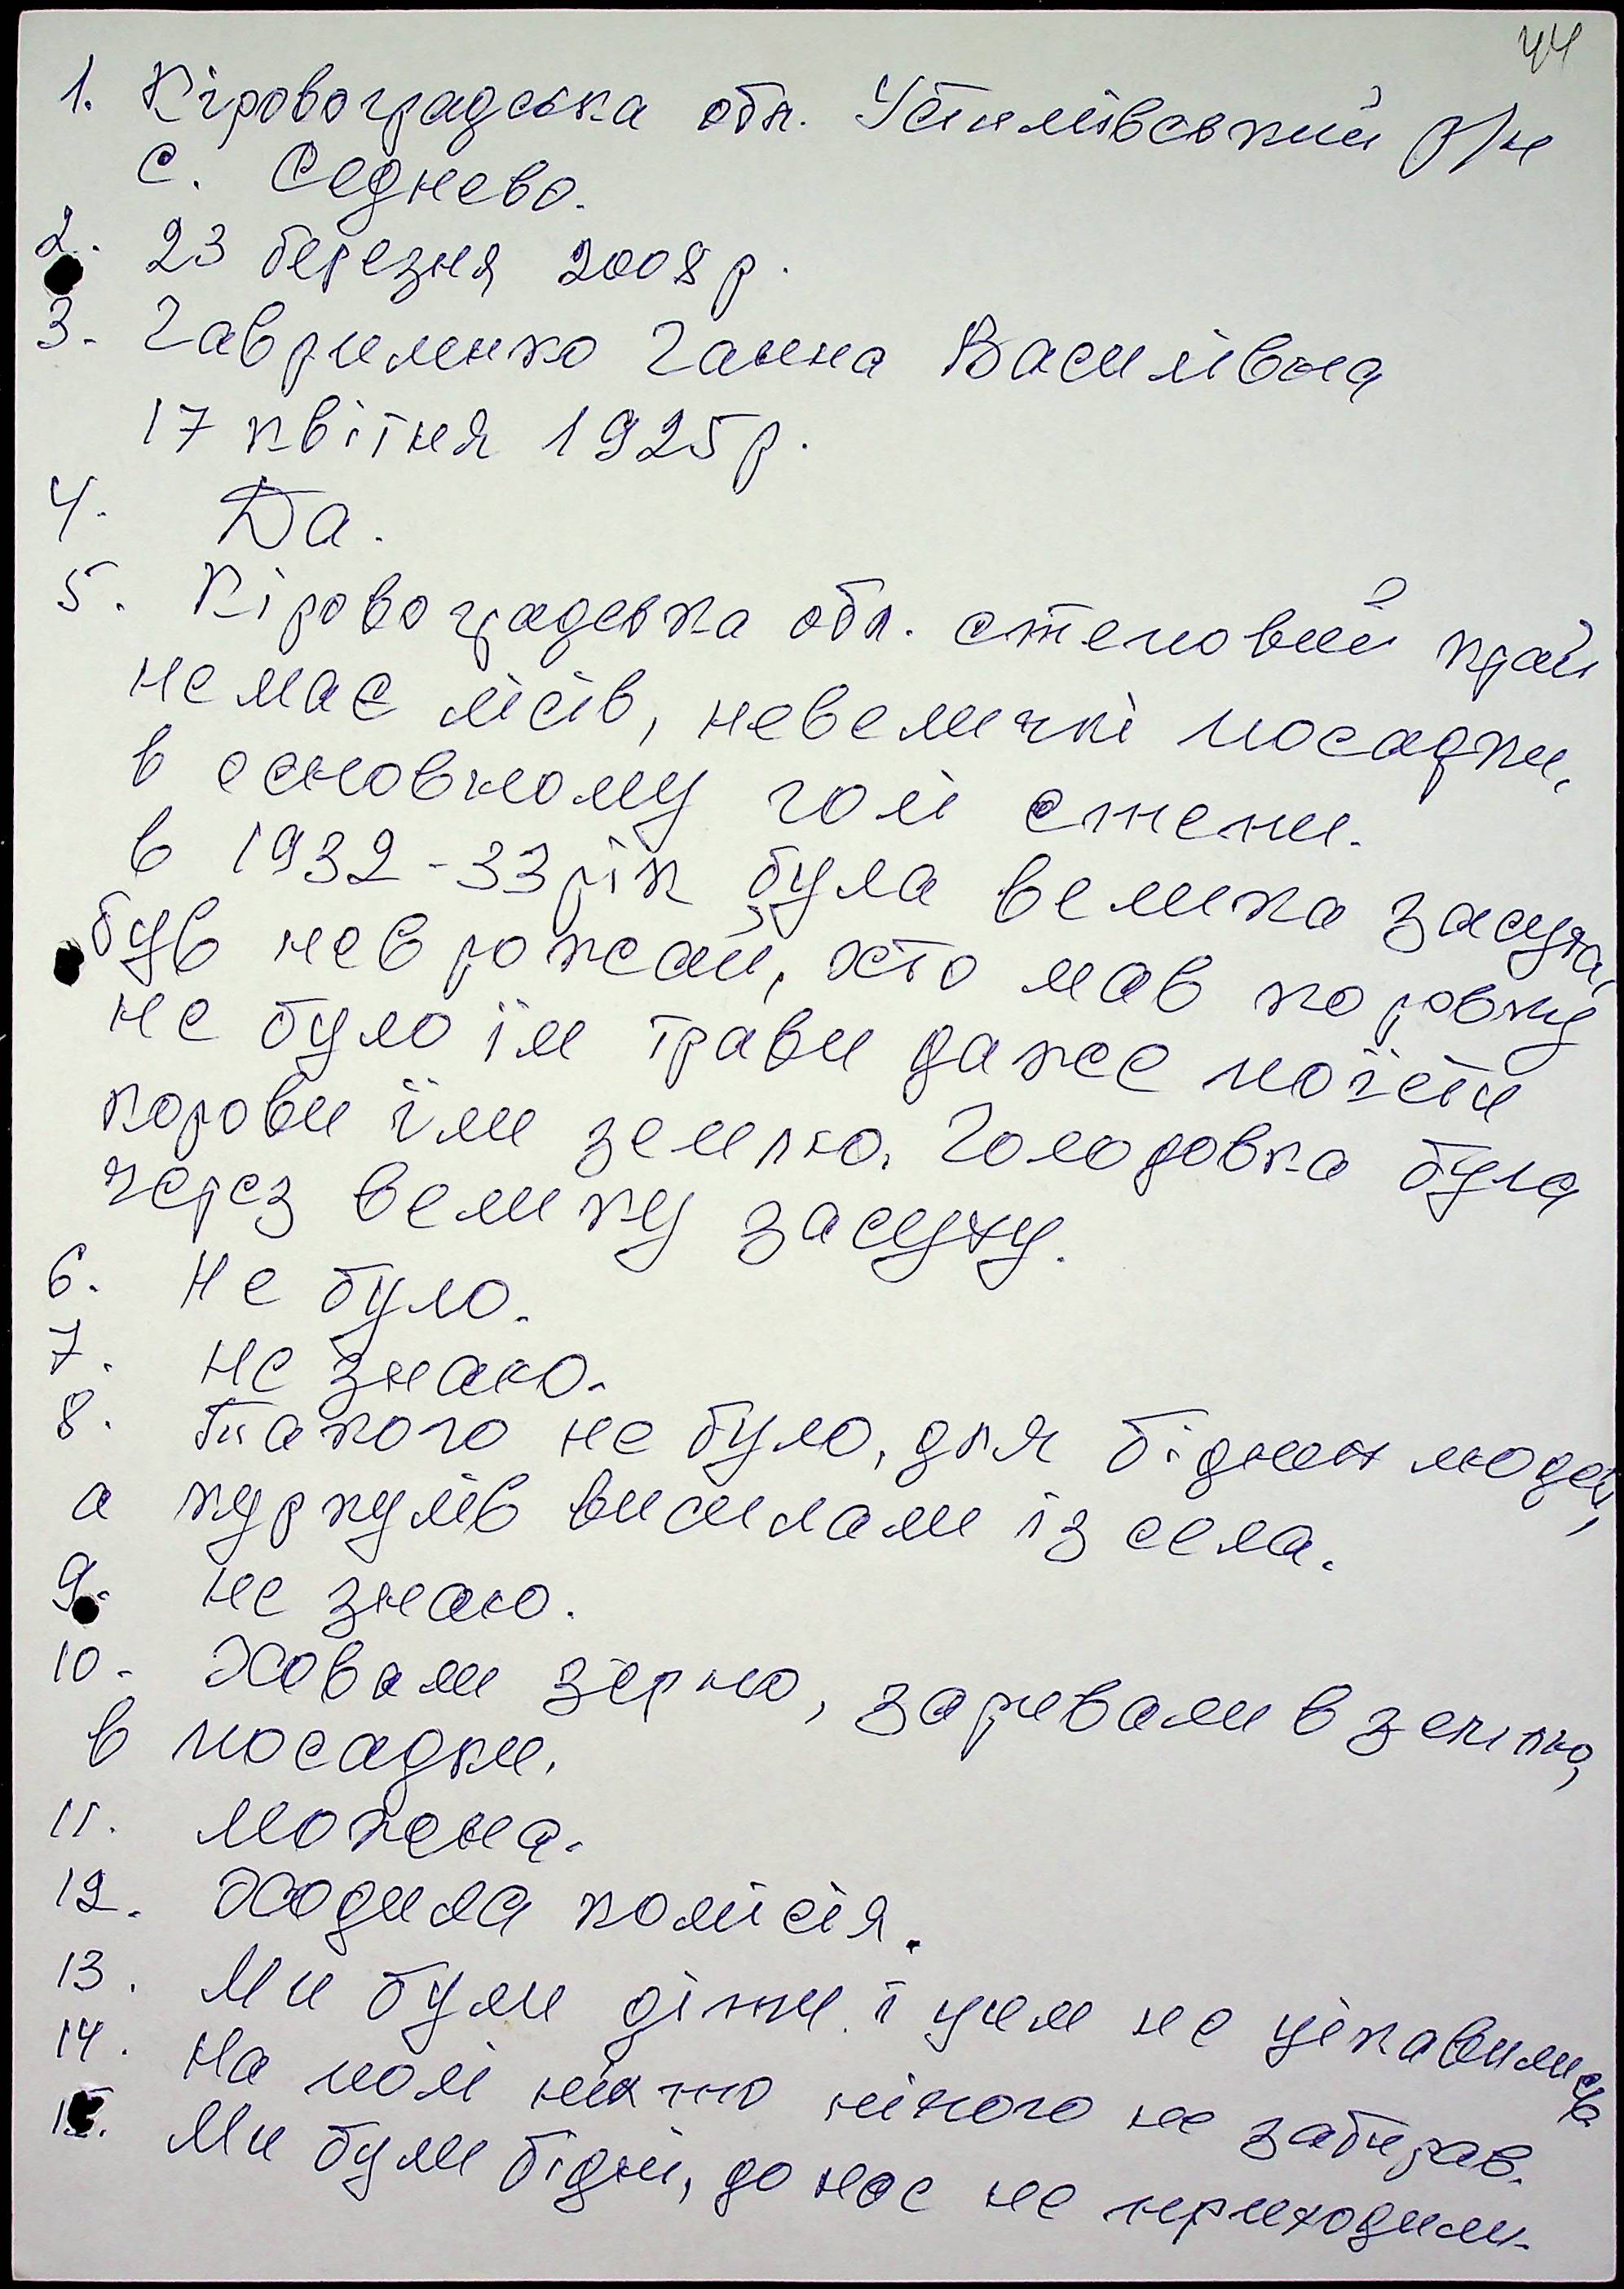 44
1. Кіровоградська обл. Устимівський р/н
с. Седнево.
2. 23 березня 2008 р.
3. Гавриленко Ганна Василівна
17 квітня 1925 р.
4. Да.
5. Кіровоградська обл. степовий край
немає лісів, невеличкі посадки,
в основному голі степи.
в 1932-33 рік була велика засуха,
був неврожай, хто мав коровку
не було їм трави даже поїсти
корови їли землю. Голодовка була
через велику засуху.
6. Не було.
7. Не знаю.
8. Такого не було, для бідних людей,
а куркулів висилали із села.
9. Не знаю.
10. Ховали зерно, заривали в землю,
в посадки.
11. Можна.
12. Ходила комісія.
13. Ми були діти і цим не цікавились
14. На полі ніхто нічого не забирав.
15. Ми були бідні, до нас не приходили.